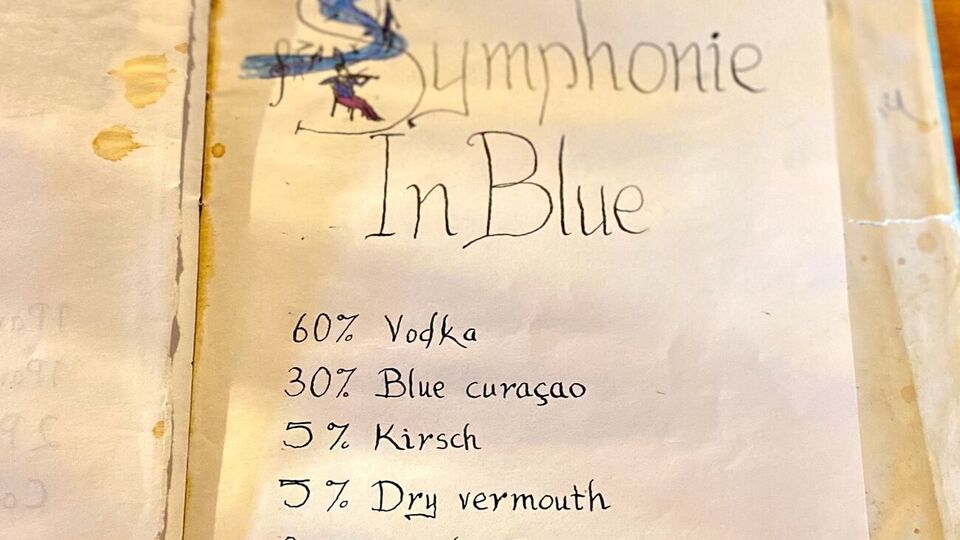 Symphonie
In Blue
60% Vodka
30% Blue curaçao
5% Kirsch
5% Dry vermouth